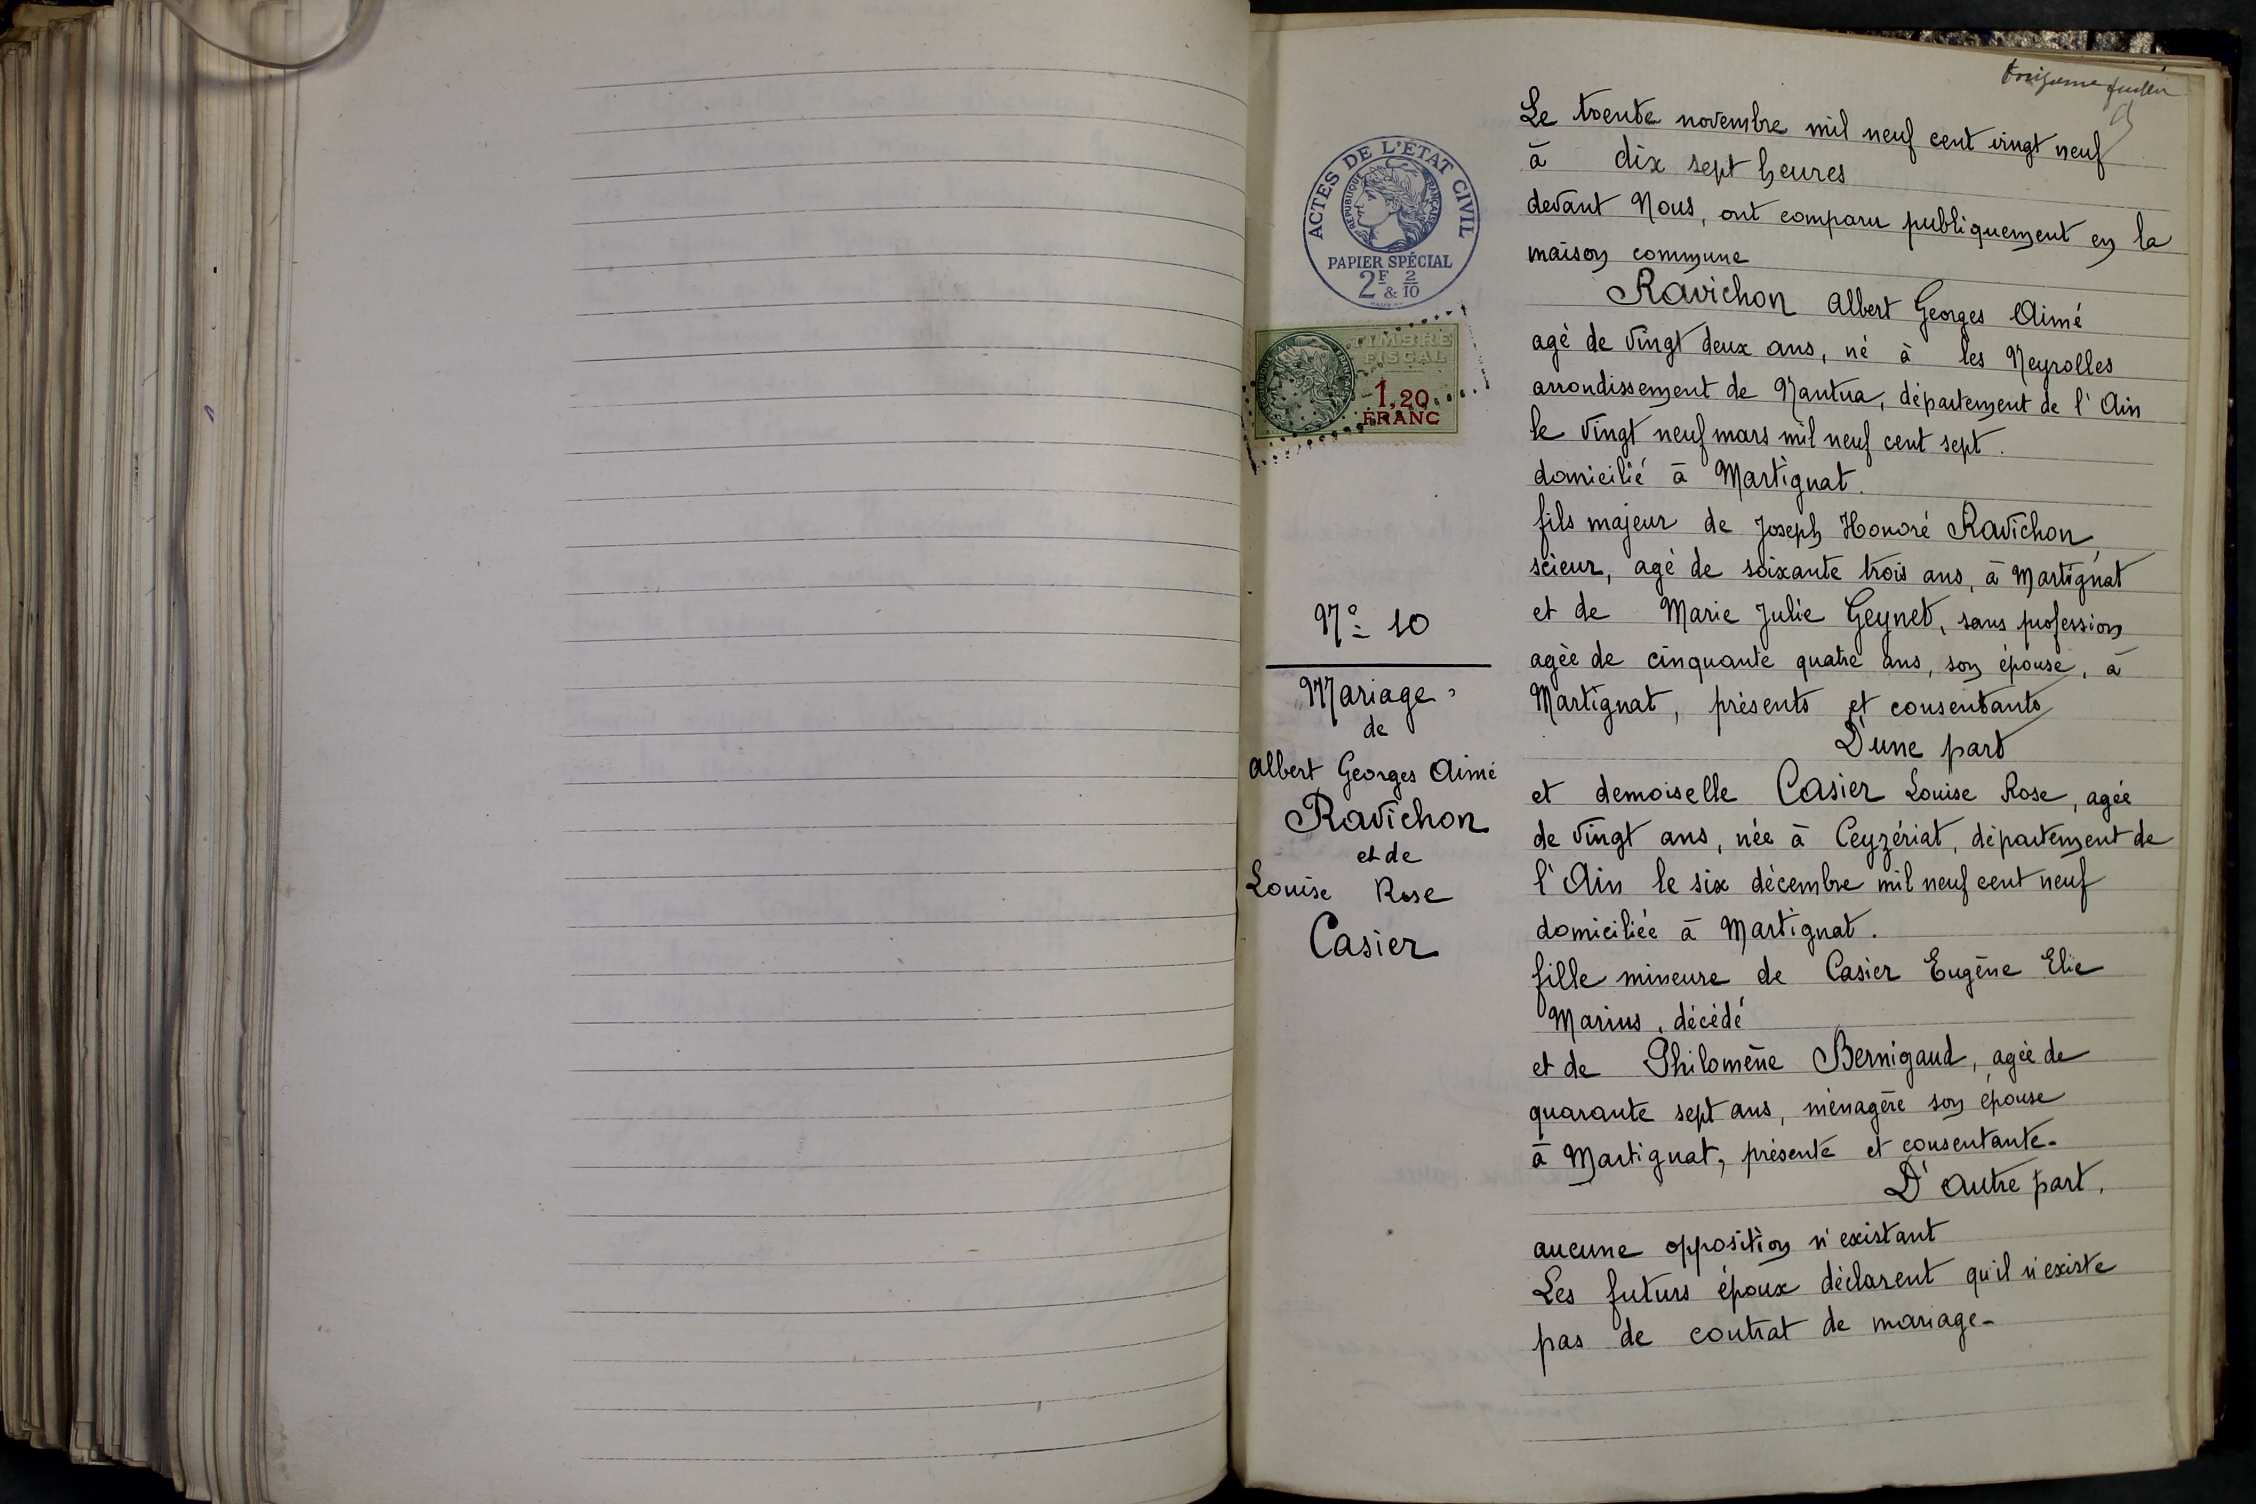 treizième feuillet
ACTES DE L'ETAT CIVIL
RÉPUBLIQUE FRANÇAISE
PAPIER SPÉCIAL
2F & 2/10
TIMBRE
FISCAL
1,20
FRANC
N° 10
Mariage
de
Albert Georges Aimé
Ravichon
et de
Louise Rose
Casier
Le trente novembre mil neuf cent vingt neuf
à dix sept heures
devant Nous, ont comparu publiquement en la
maison commune
Ravichon Albert Georges Aimé
agé de vingt deux ans, né à les Neyrolles
arrondissement de Nantua, département de l'Ain
le vingt neuf mars mil neuf cent sept.
domicilié à Martignat.
fils majeur de Joseph Honoré Ravichon,
scieur, agé de soixante trois ans, à Martignat
et de Marie Julie Geynet, sans profession
agée de cinquante quatre ans, son épouse, à
Martignat, présents et consentants
D'une part
et demoiselle Casier Louise Rose, agée
de vingt ans, née à Ceyzériat, département de
l'Ain le six décembre mil neuf cent neuf
domiciliée à Martignat.
fille mineure de Casier Eugène Elie
Marius, décédé
et de Philomène Bernigaud, agée de
quarante sept ans, ménagère son épouse
à Martignat, présente et consentante-
D'autre part.
aucune opposition n'existant
Les futurs époux déclarent qu'il n'existe
pas de contrat de mariage-